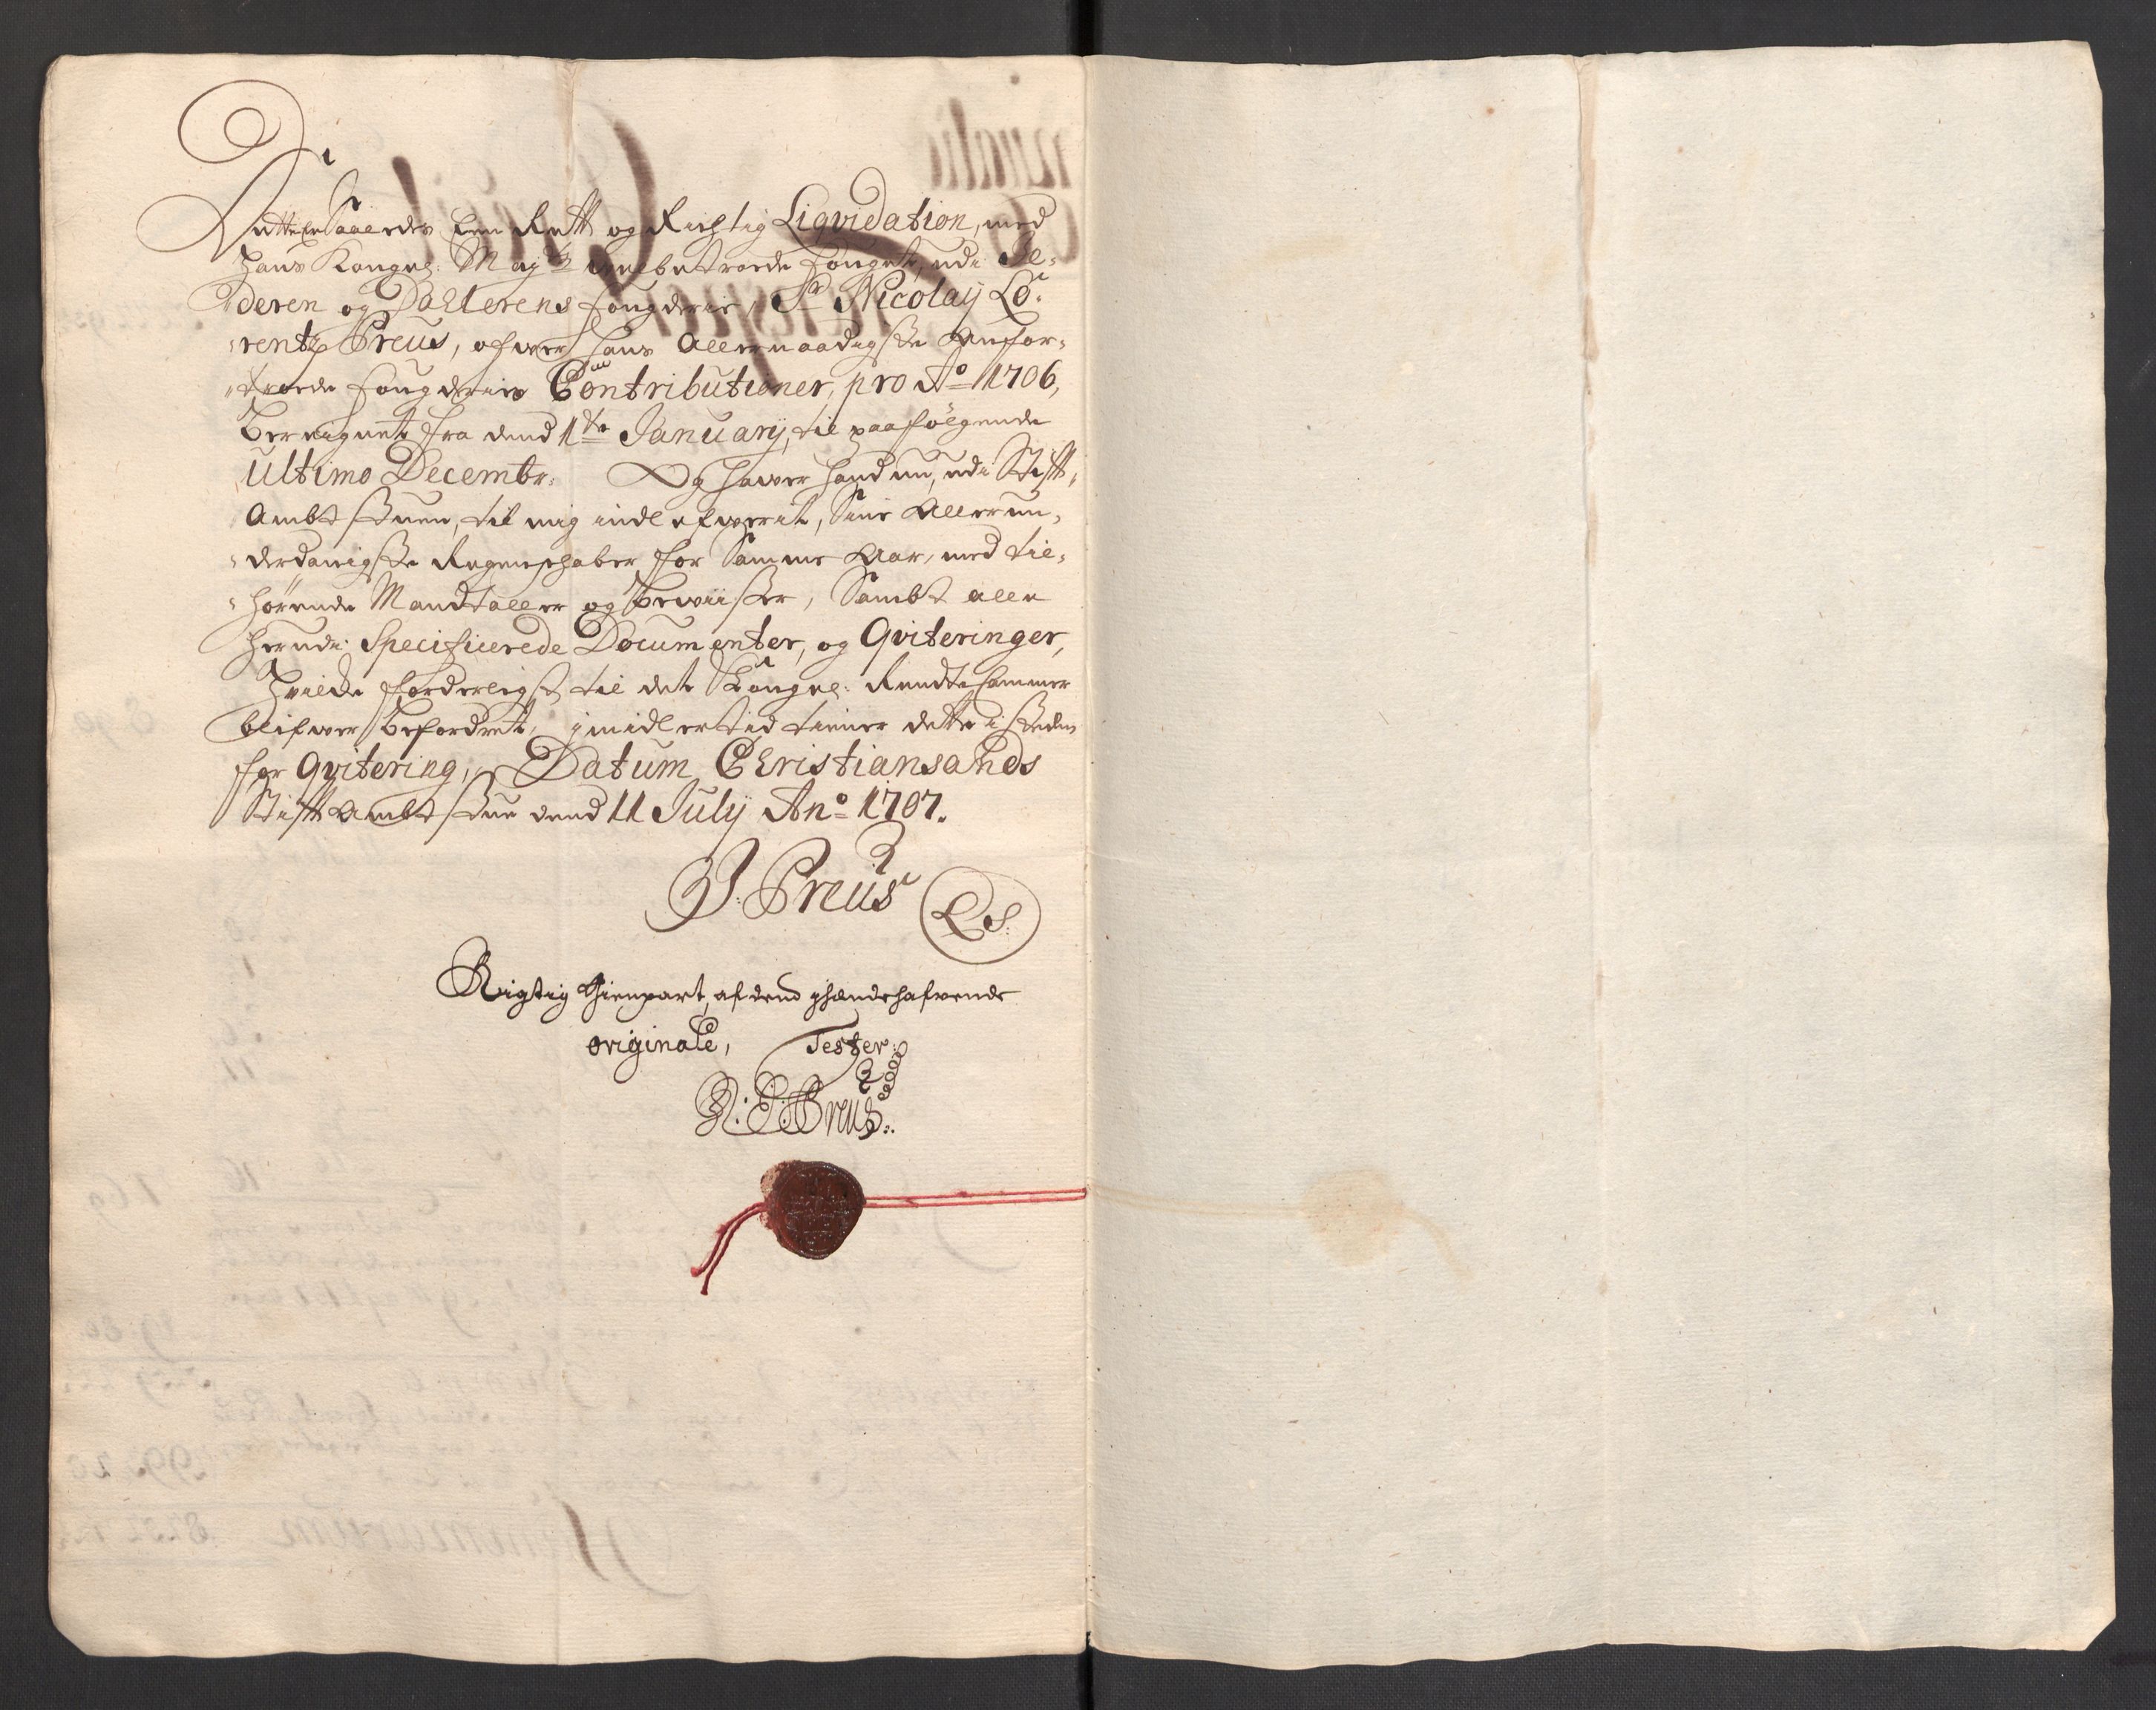 Dette er Saaledes Een Rett og Richtig Liqvidation, med
Hans Kongel: Mayts velbetroede Fouget, udi Je-
deren og Dahlerens Fougderie, Sr Nicolaij Lo-
rentz Preus, ofwer hans Allernaadigste Anfor-
troede Fougderies Contributioner, pro Ao 1706,
Bereignet fra dend 1te Januarij, til paafølgende
Ultimo Decembr: Og hafwer hand nu, udi Stift-
Ambtstuen, til mig indlefwerit, Sine Allerun-
derdanigste Regenschaber for Samme Aar, med til-
hørende Mandtaller og Bewiister, Sambt alle
herudi Specificerede Documenter, og Qviteringer,
Hvilcke forderligst til det Kongel: Rendtekammer
blifwer Befordret, imidlertid tiener dette i steden
for Qvitering, Datum Christiansands
Stiftambtstue dend 11 July Ano 1707.
J: Preus
LS:
Rigtig Gienpart, af dend ihændehafvende
originale, Tester:
N: L: Preus: